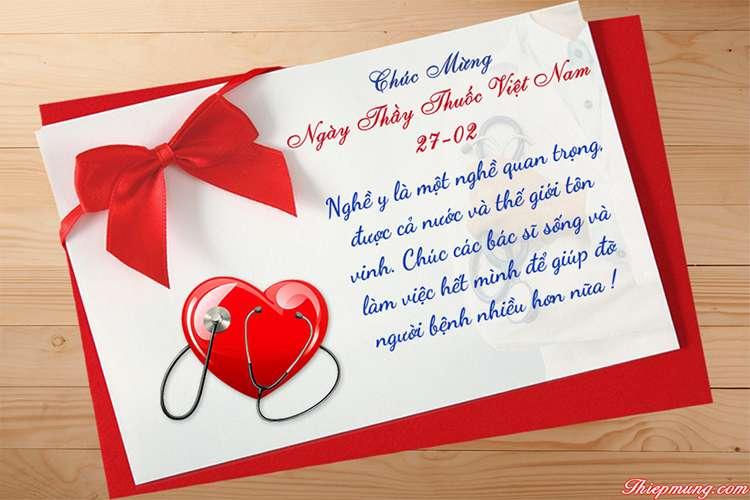 Chúc Mừng
Ngày Thầy Thuốc Việt Nam
27-02
Nghề y là một nghề quan trọng,
được cả nước và thế giới tôn
vinh. Chúc các bác sĩ sống và
làm việc hết mình để giúp đỡ
người bệnh nhiều hơn nữa !
Thiepmung.com